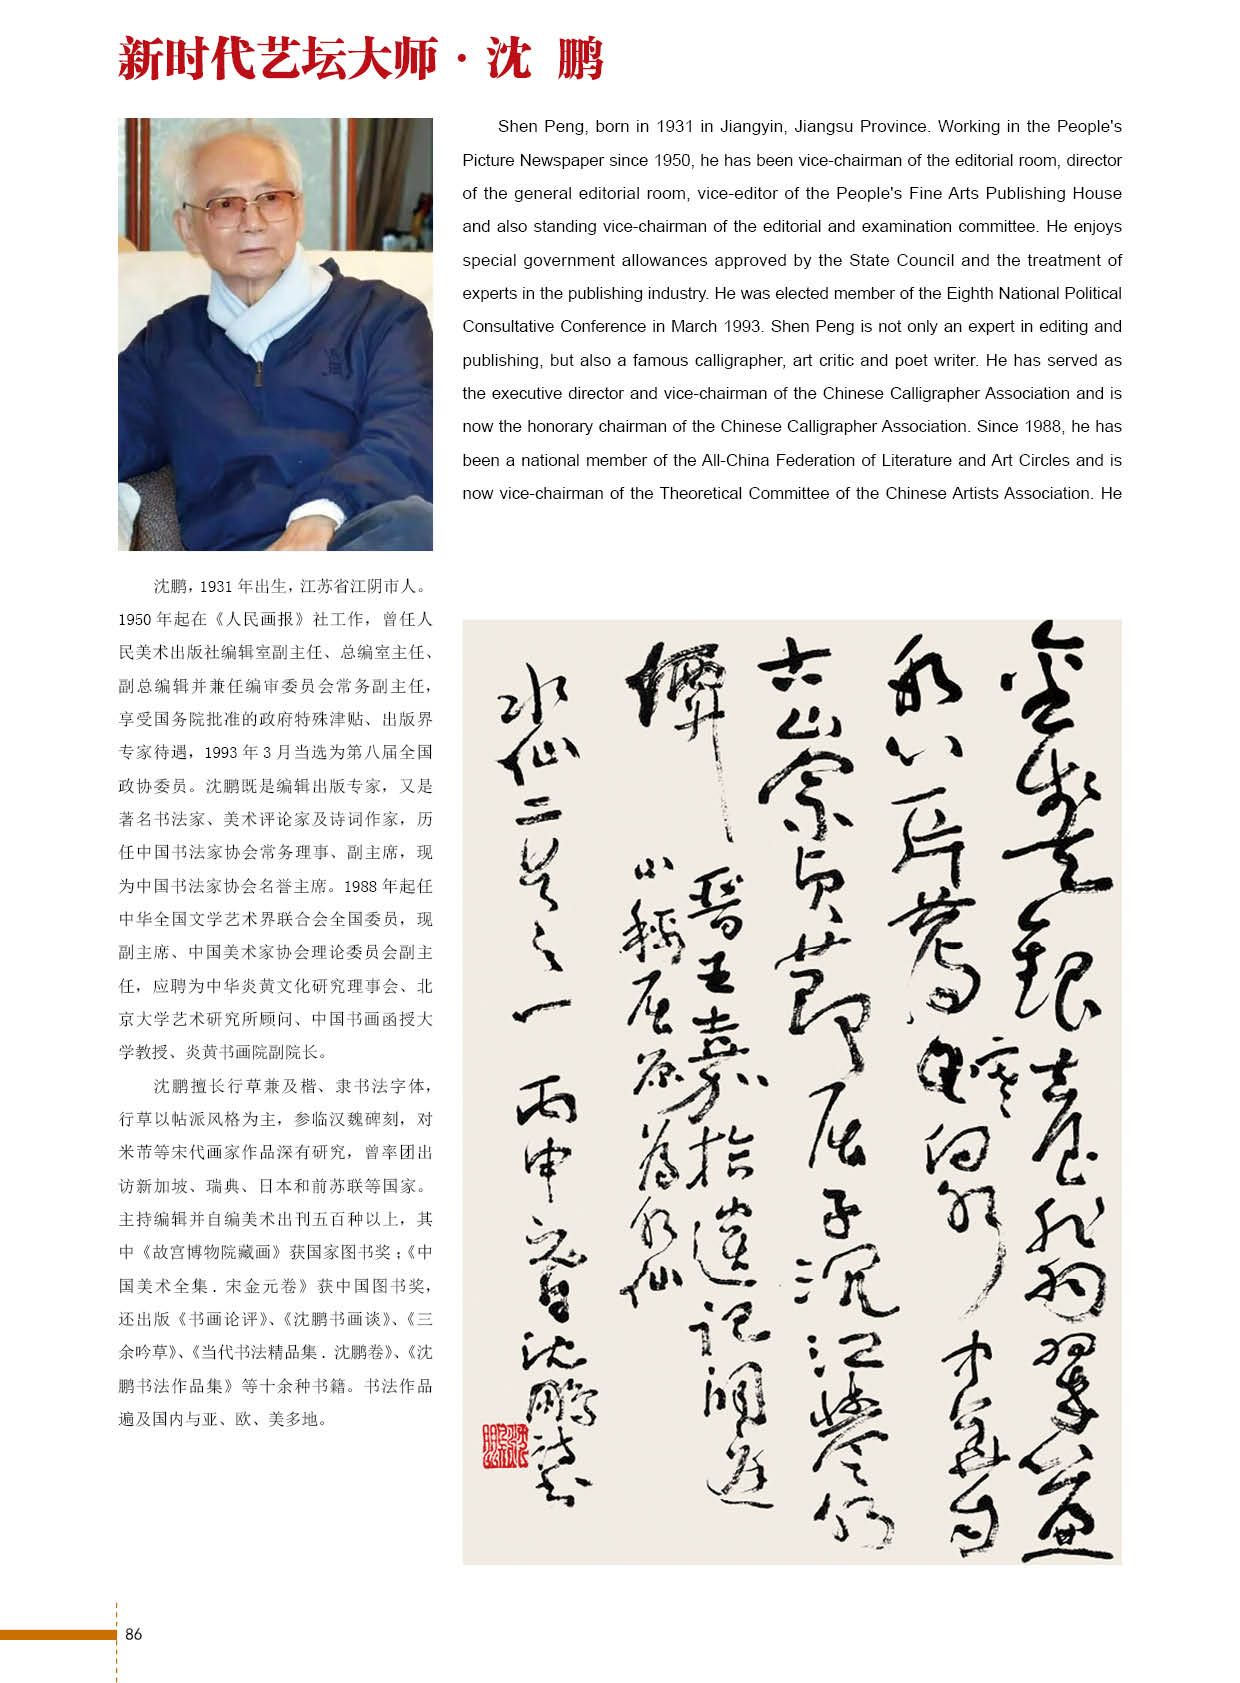 新时代艺坛大师·沈 鹏
Shen Peng, born in 1931 in Jiangyin, Jiangsu Province. Working in the People's
Picture Newspaper since 1950, he has been vice-chairman of the editorial room, director
of the general editorial room, vice-editor of the People's Fine Arts Publishing House
and also standing vice-chairman of the editorial and examination committee. He enjoys
special government allowances approved by the State Council and the treatment of
experts in the publishing industry. He was elected member of the Eighth National Political
Consultative Conference in March 1993. Shen Peng is not only an expert in editing and
publishing, but also a famous calligrapher, art critic and poet writer. He has served as
the executive director and vice-chairman of the Chinese Calligrapher Association and is
now the honorary chairman of the Chinese Calligrapher Association. Since 1988, he has
been a national member of the All-China Federation of Literature and Art Circles and is
now vice-chairman of the Theoretical Committee of the Chinese Artists Association. He
沈鹏，1931 年出生，江苏省江阴市人。
1950 年起在《人民画报》社工作，曾任人
民美术出版社编辑室副主任、总编室主任、
副总编辑并兼任编审委员会常务副主任，
享受国务院批准的政府特殊津贴、出版界
专家待遇，1993 年 3 月当选为第八届全国
政协委员。沈鹏既是编辑出版专家，又是
著名书法家、美术评论家及诗词作家，历
任中国书法家协会常务理事、副主席，现
为中国书法家协会名誉主席。1988 年起任
中华全国文学艺术界联合会全国委员，现
副主席、中国美术家协会理论委员会副主
任，应聘为中华炎黄文化研究理事会、北
京大学艺术研究所顾问、中国书画函授大
学教授、炎黄书画院副院长。
沈鹏擅长行草兼及楷、隶书法字体，
行草以帖派风格为主，参临汉魏碑刻，对
米芾等宋代画家作品深有研究，曾率团出
访新加坡、瑞典、日本和前苏联等国家。
主持编辑并自编美术出刊五百种以上，其
中《故宫博物院藏画》获国家图书奖；《中
国美术全集．宋金元卷》获中国图书奖，
还出版《书画论评》、《沈鹏书画谈》、《三
余吟草》、《当代书法精品集．沈鹏卷》、《沈
鹏书法作品集》等十余种书籍。书法作品
遍及国内与亚、欧、美多地。
金盏银台
一片
古山宗贞节屈子沉江楚
晋王嘉拾遗记洞庭
山称屈原为水仙
水仙二首之一 丙申 沈鹏
86